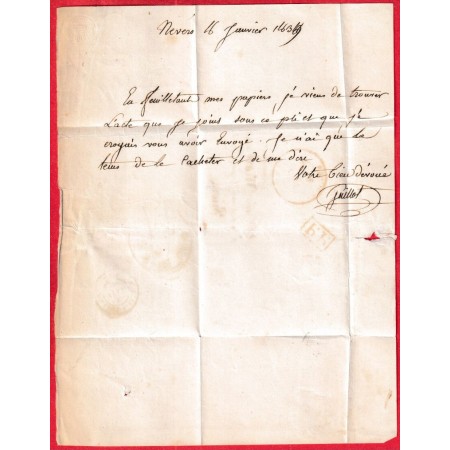 Nevers 16 Janvier 1839
En feuilletant mes papiers, je viens de trouver
l'acte que je joins sous ce pli et que je
croyais vous avoir Envoyé. Je n'ai que le
tems de le Cacheter et de me dire
Votre bien dévoué
Guillot
P.P.